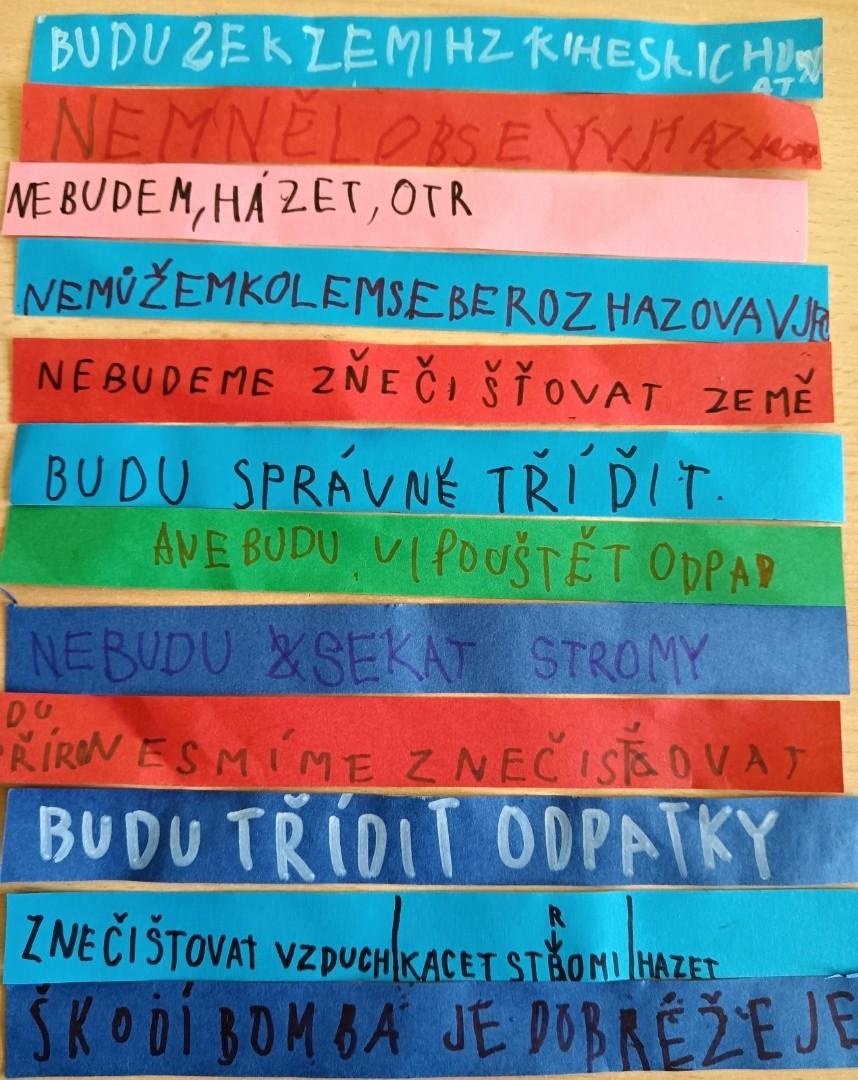 BUDU ZEK ZEMI HZ KIHESKIC HU AT
NEMNĚL OBSE VVJHAZ
NEBUDEM, HÁZET, OTR
NEMŮŽEMKOLEMSEBEROZHAZOVAVJ
NEBUDEME ZŇEČIŠŤOVAT ZEMĚ
BUDU SPRÁVNĚ TŘÍĎIT.
ANEBUDU VIPOUŠTĚT ODPAD
NEBUDU SEKAT STROMY
DU
PŘÍRONESMÍME ZNEČISŤOVAT
BUDU TŘÍDIT ODPATKY
ZNEČIŠTOVAT VZDUCH|KACET STROMI|HAZET
ŠKODÍ BOMBA JE DOBRÉŽE JE